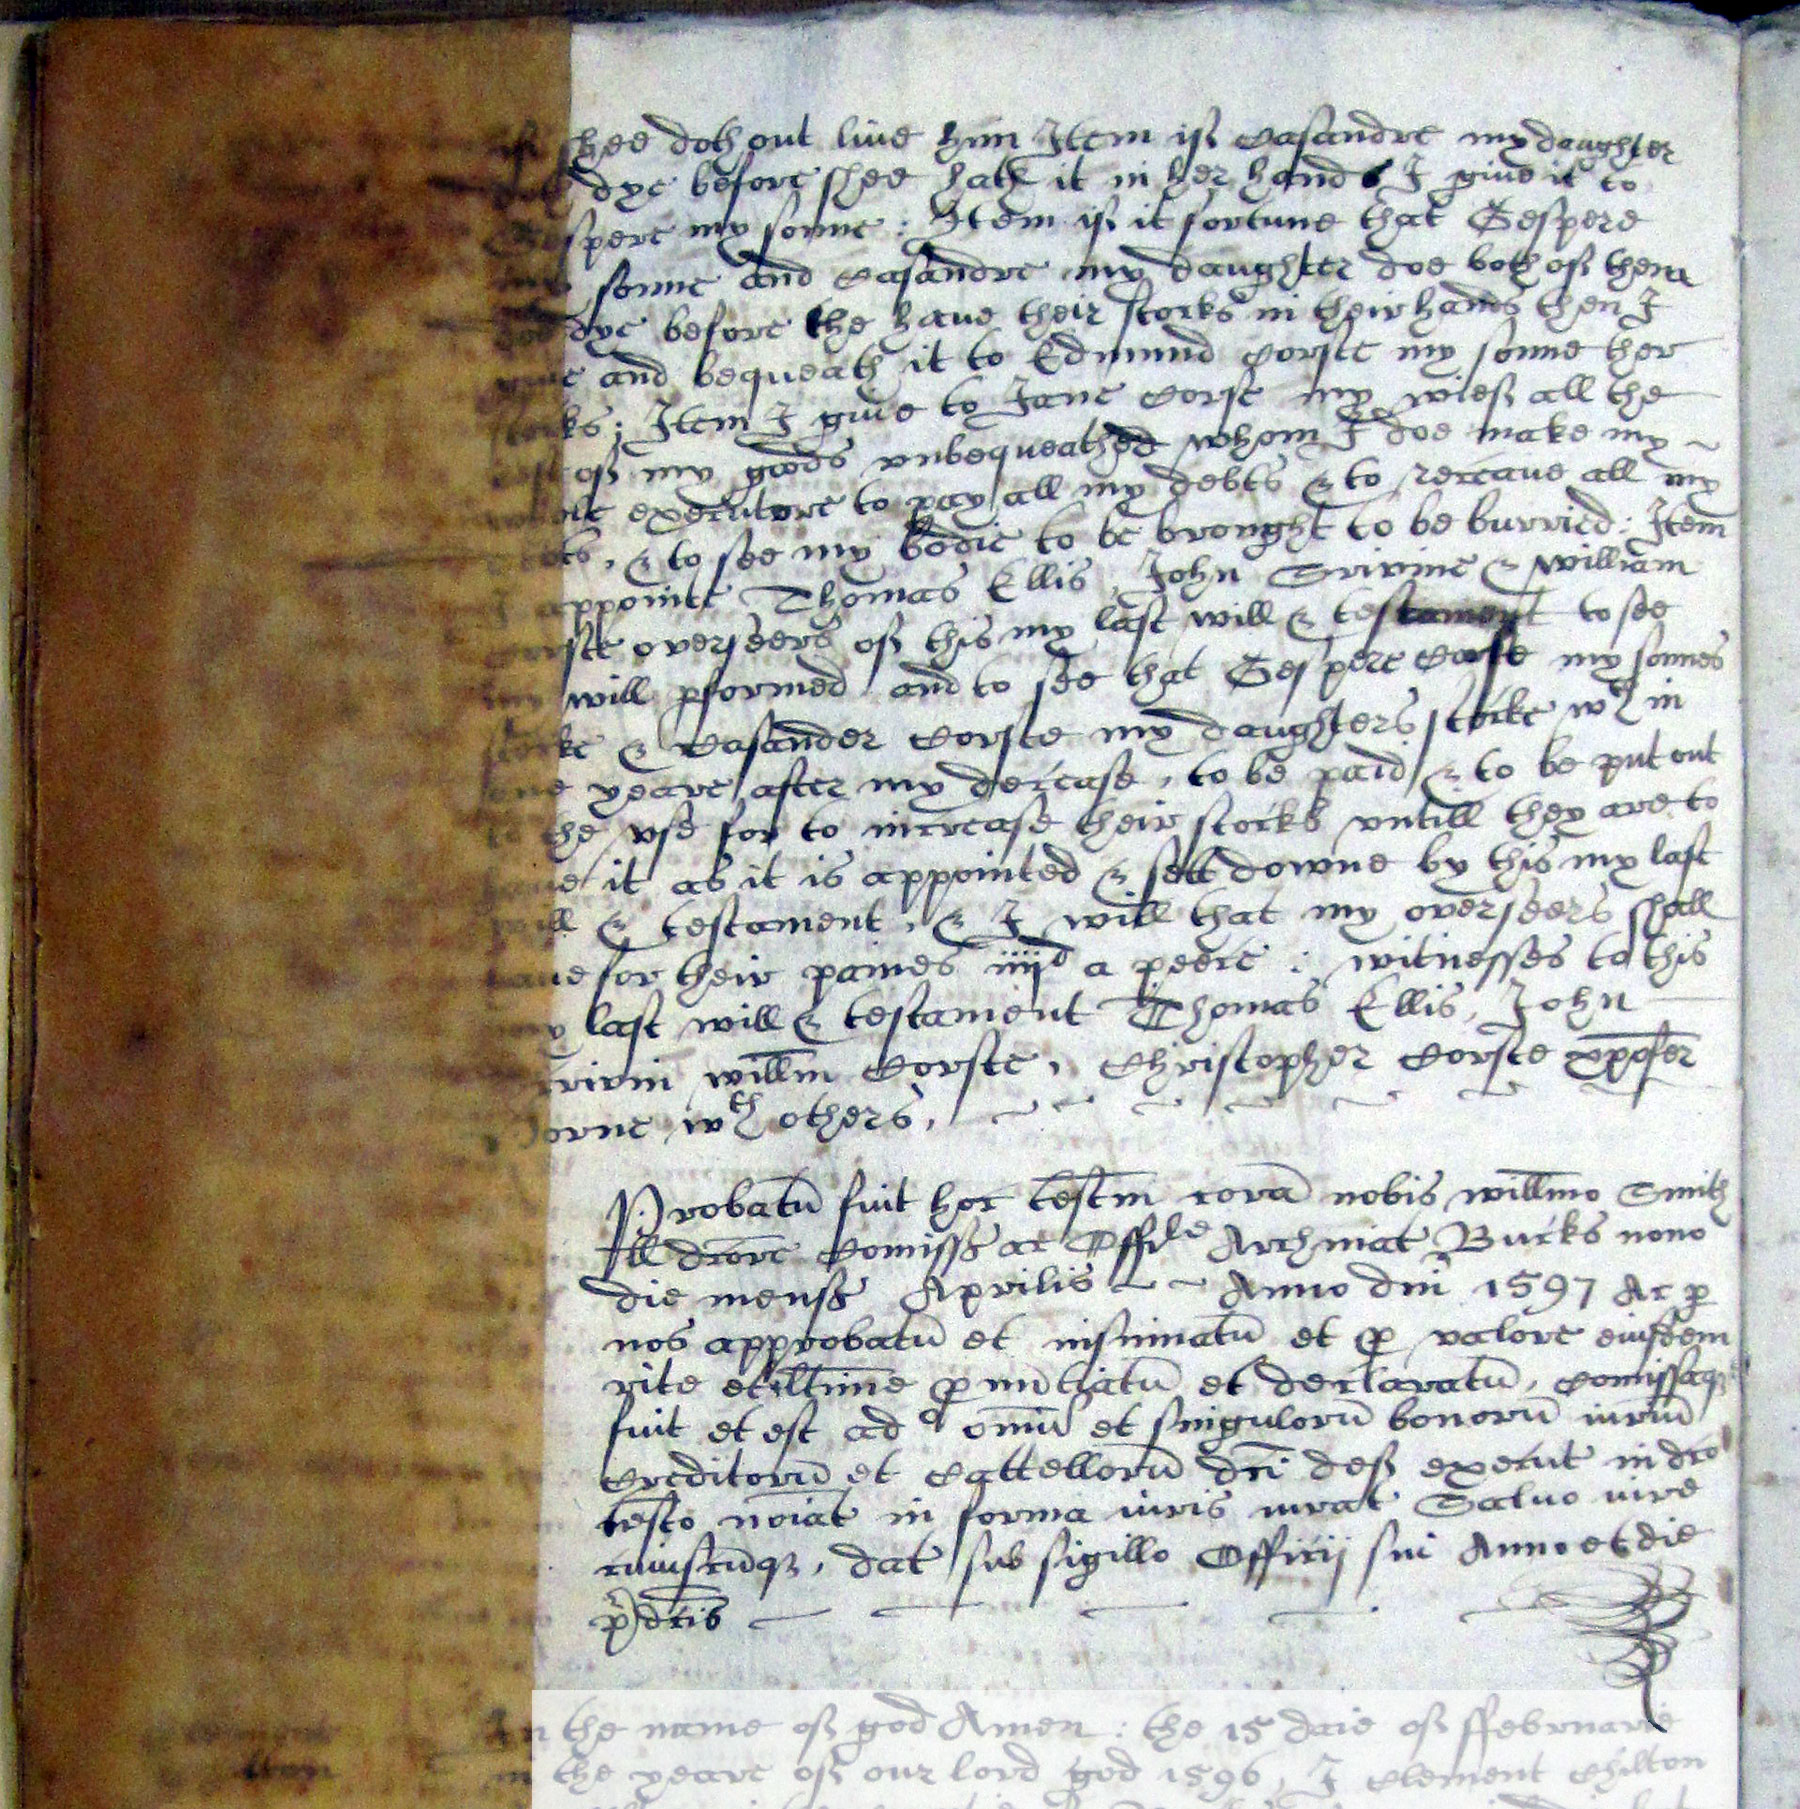 if shee doth out live him Item if Casandre my daughter
doth dye before shee hath it in her hands I give it to
Gespere my sonne : Item if it fortune that Gespere
my sonne and Casandre my daughter doe both of them
doe dye before the have their stocks in their hands then I
give and bequeath it to Edmund Corste my sonne ther
stocks ; Item I give to Jane Corste my wief all the
rest of my goods unbequeathed whom I doe make my
whole executore to pay all my debts & to receave all my
debts , & to see my bodie to be brought to be burried : Item
I appointe Thomas Ellis , John Scrivine & William
Corste overseers of this my last will & testament to see
my will pformed and to see that Gespere Corste my sonnes
stocke & Casander Corste my daughters stocke wth in
one yeare after my decease , to be paid & to be put out
to the use for to increase their stocks untill they are to
have it as it is appointed & sett downe by this my last
will & testament , & I will that my overseers shall
have for their paines iiijd a peece : witnesses to this
my last will & testament Thomas Ellis , John
Scrivin willm Corste , Christopher Corste xpofer
orne wth others ,
Probatu fuit hoc testm cora nobis willmo Smith
ll dcore Comiss ac Offile Archniat Bucks nono
die mens Aprilis Anno dni 1597 Ac p
nos approbatu et insinuatu et p valore eiusdem
rite et ltime pnuntiatu et declaratu , Comissaq
fuit et est ado omiu et singuloru bonoru iuriu
Creditoru et Cattelloru dci def execut in dco
testo noiat in forma iuris iurat Salvo iure
cuiuscuq , dat sub sigillo Officij sui Anno et die
pdcis
In the name of god Amen : the 15 daie of ffebruarie
in the yeare of our lord god 1596 , I Clement Chilton